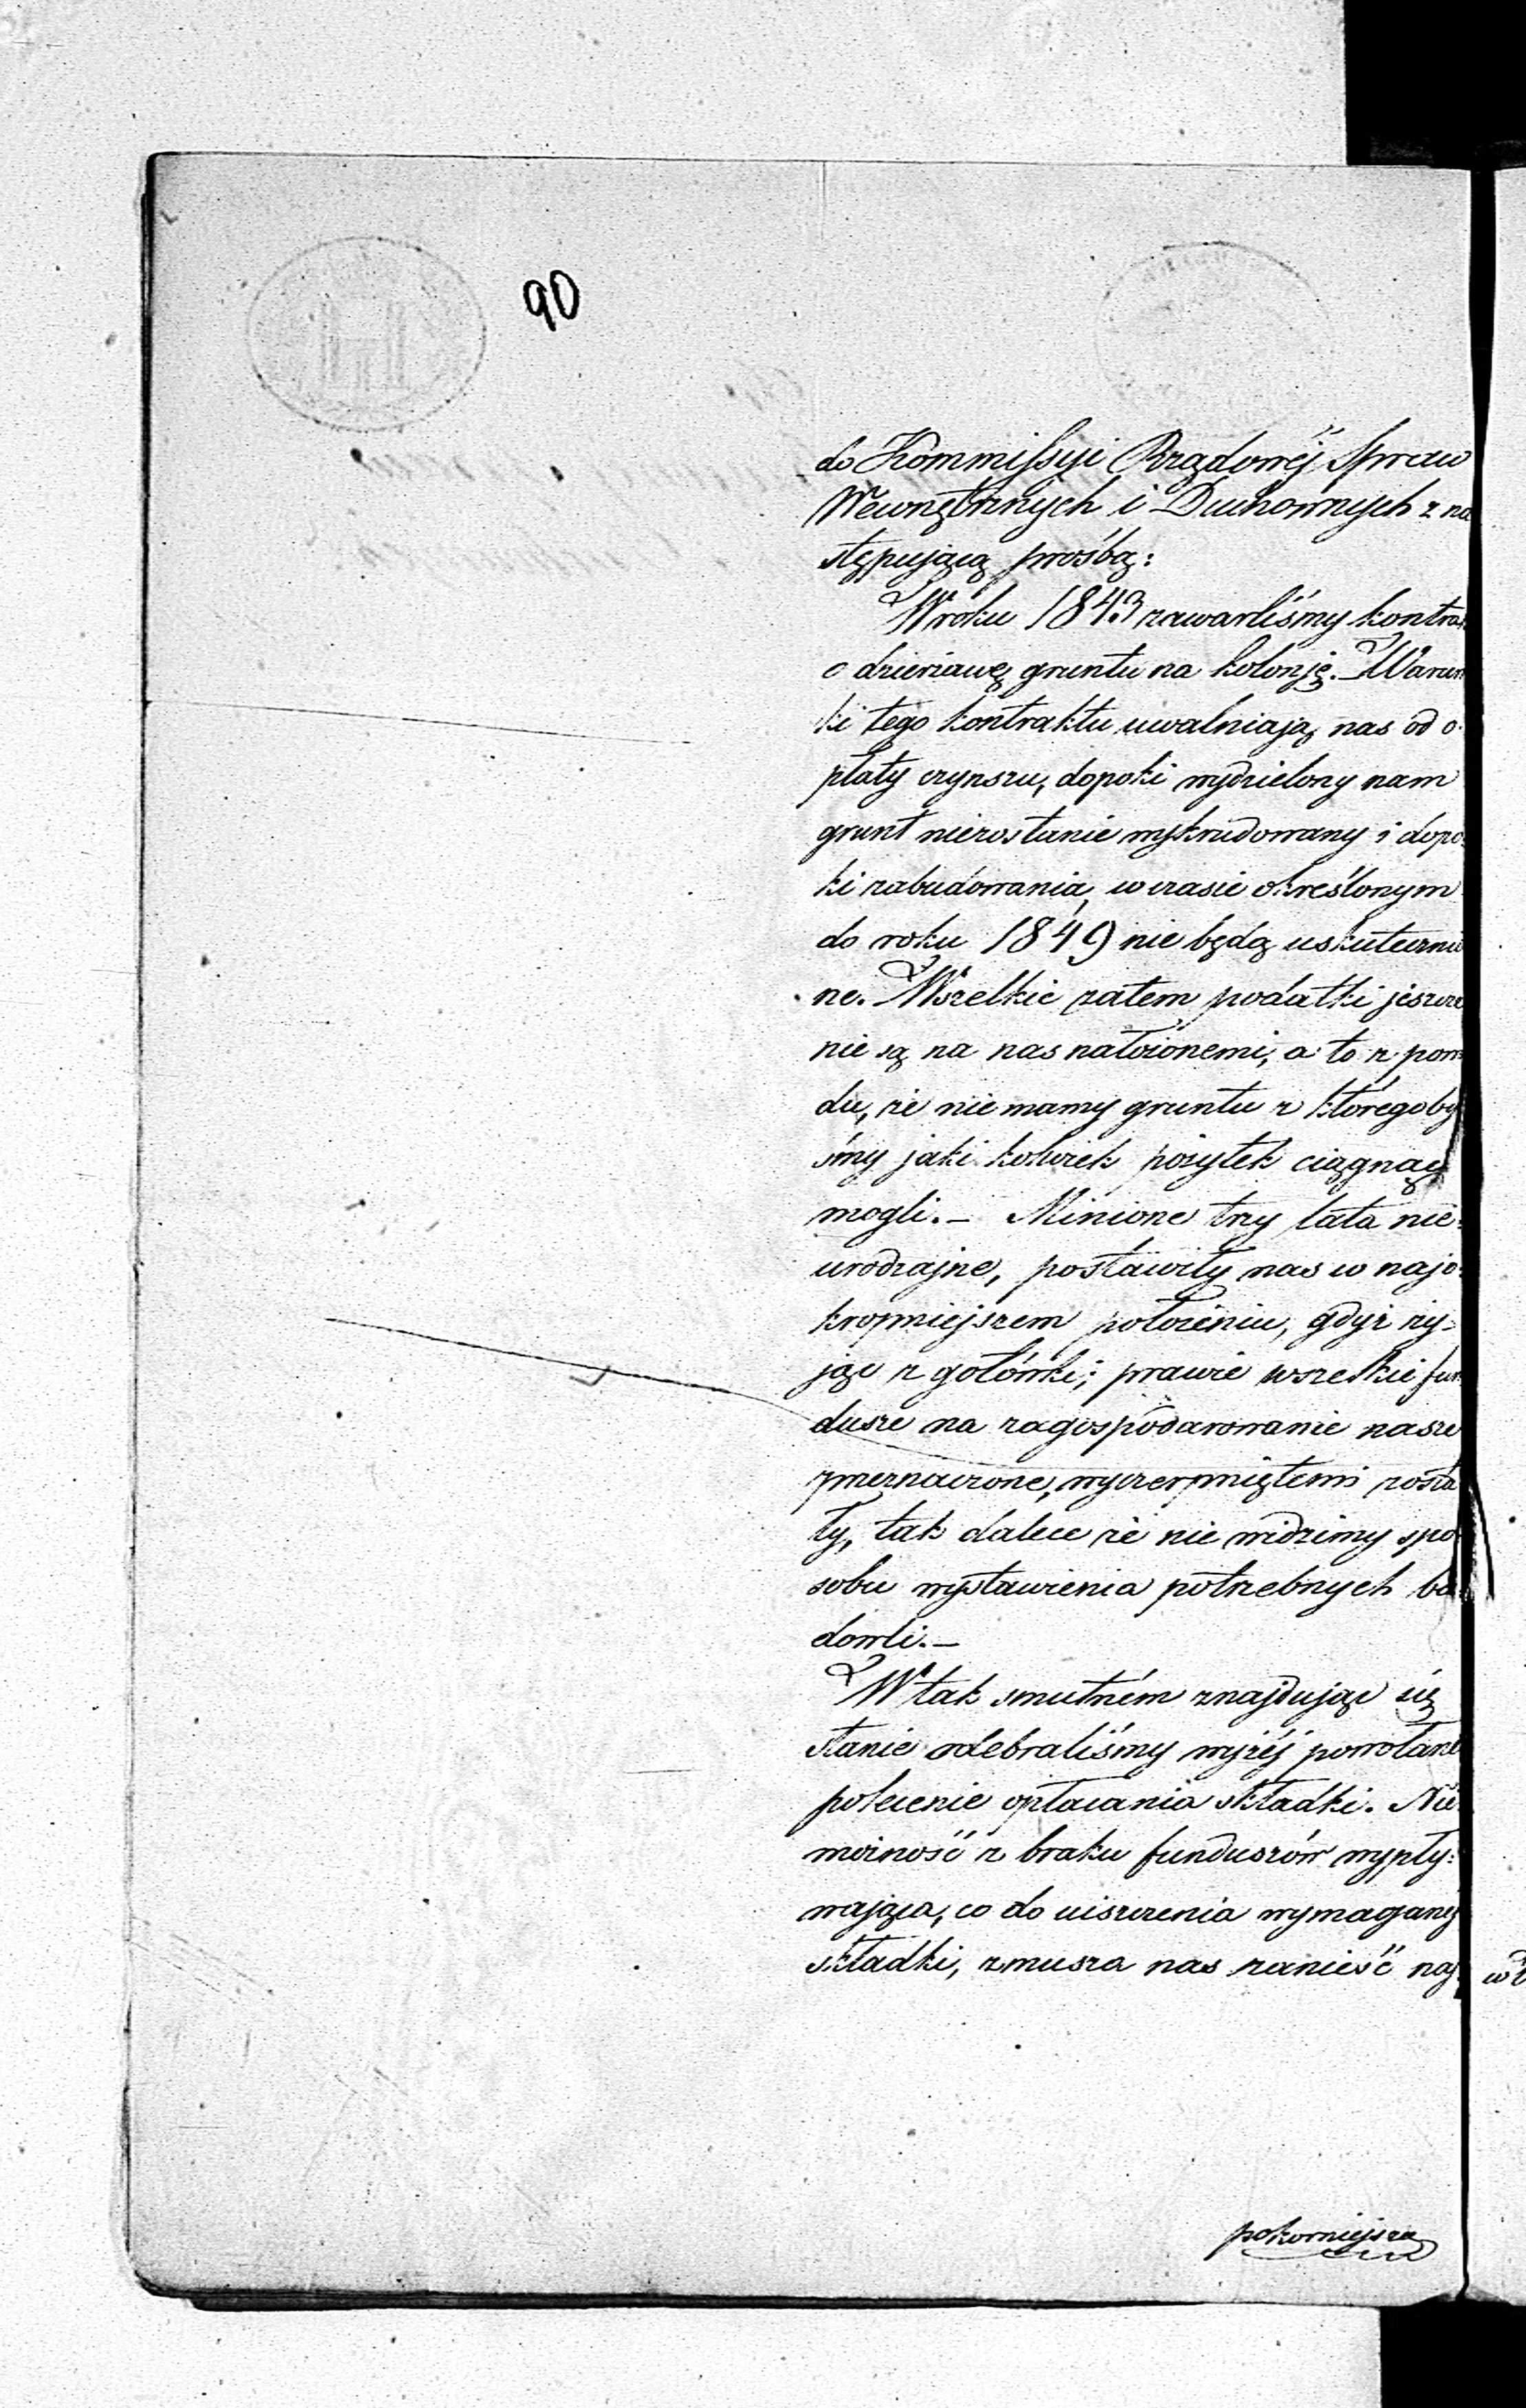 90
do Kommissyi Rządowéj Spraw
Wewnętrznych i Duchownych z na
stępującą prośbą:
W roku 1843 zawarliśmy kontra
o dzierżawę gruntu na kolonję. Warun
ki tego kontraktu uwalniają nas od o-
płaty czynszu, dopoki wydzielony nam
grunt niezostanie wykrudowany i dopo
ki zabudowania, w czasie określonym
do roku 1849 nie będą uskuteczni
ne. Wszelkie zatem podatki jeszcze
nie są na nas nałożonemi, a to z powo
du, że nie mamy gruntu z któregoby
śmy jaki kolwiek pożytek ciągnąć
mogli. – Minione trzy lata nie-
urodzajne, postawiły nas w najo-
kropniejszem położeniu, gdyż ży-
jąc z gotówki; prawie wszelkie fun
dusze na zagospodarowanie nasze
przeznaczone, wyczerpniętemi zosta
ły, tak dalece że nie widzimy spo
sobu wystawienia potrzebnych bu
dowli. –
W tak smutném znajdując się
stanie odebraliśmy wyżéj powołane
polecenie opłacania składki. Nie
możność z braku funduszów wypły-
wająca, co do uiszczenia wymaganéj
składki, zmusza nas zanieść naj
pokorniejszą